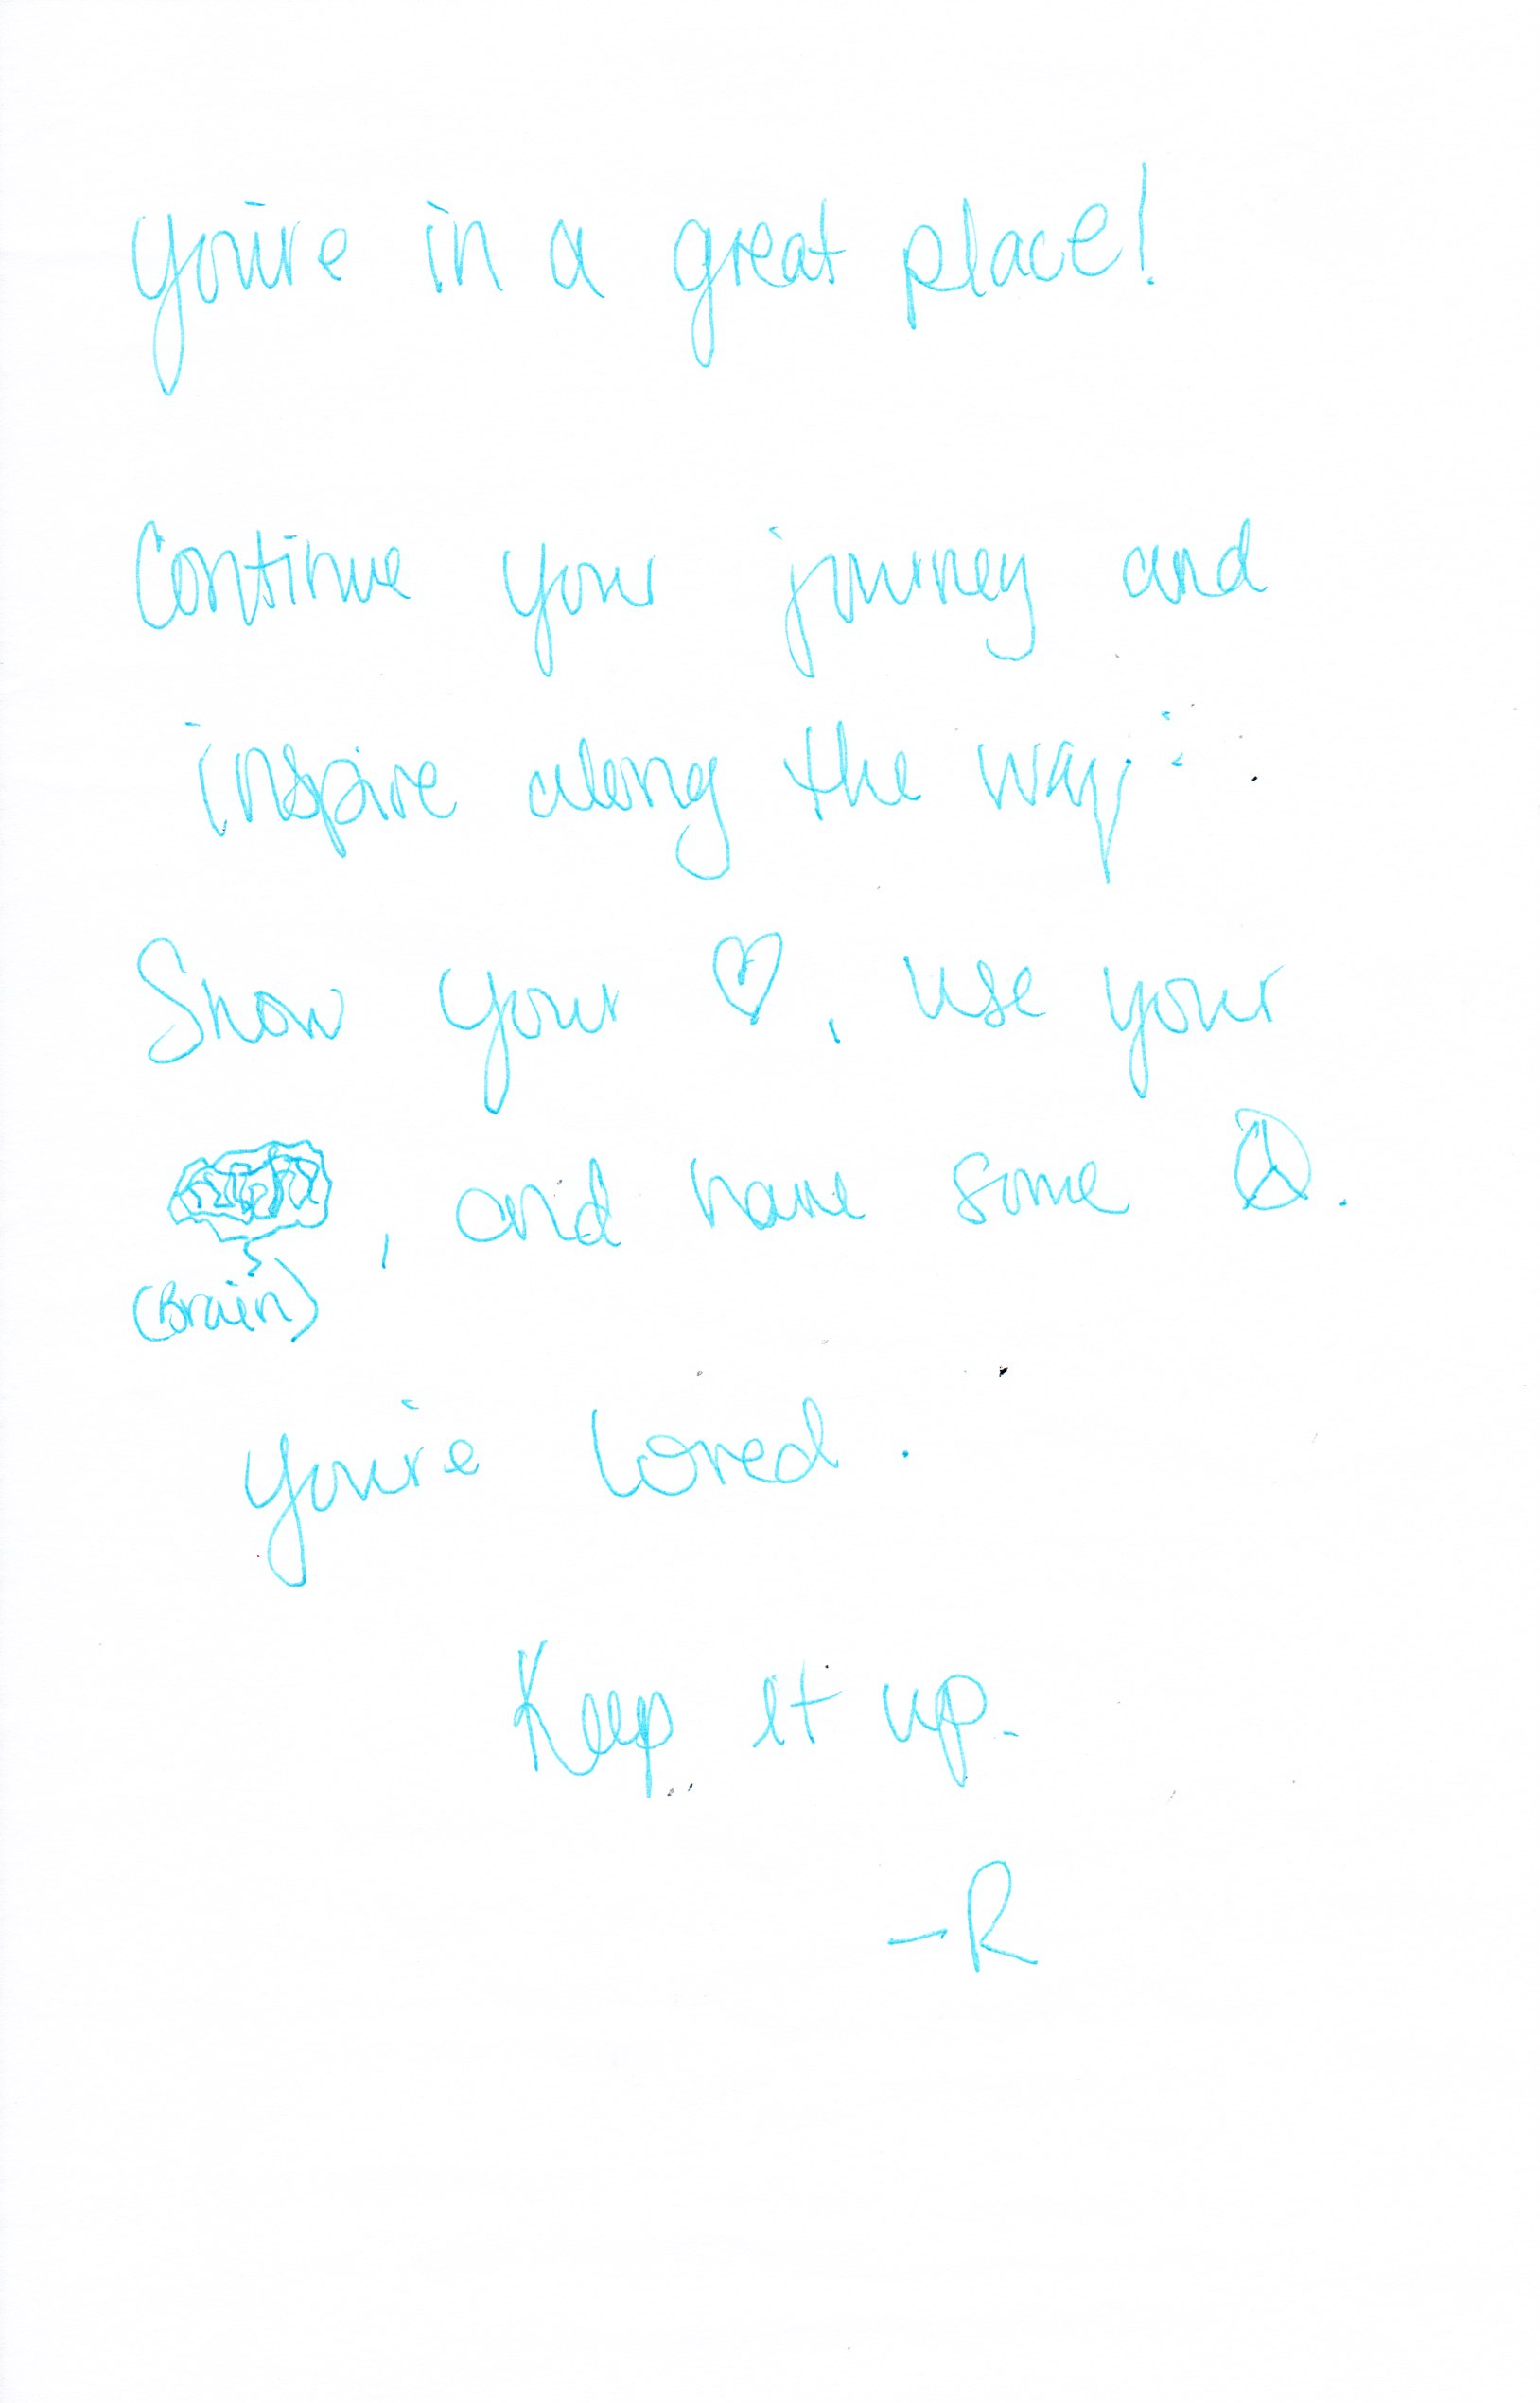 You're in a great place!
Continue your journey and
inspire along the way.
Show your ♡, use your
, and have some ☮.
(Brain)
You're loved.
Keep it up.
-R